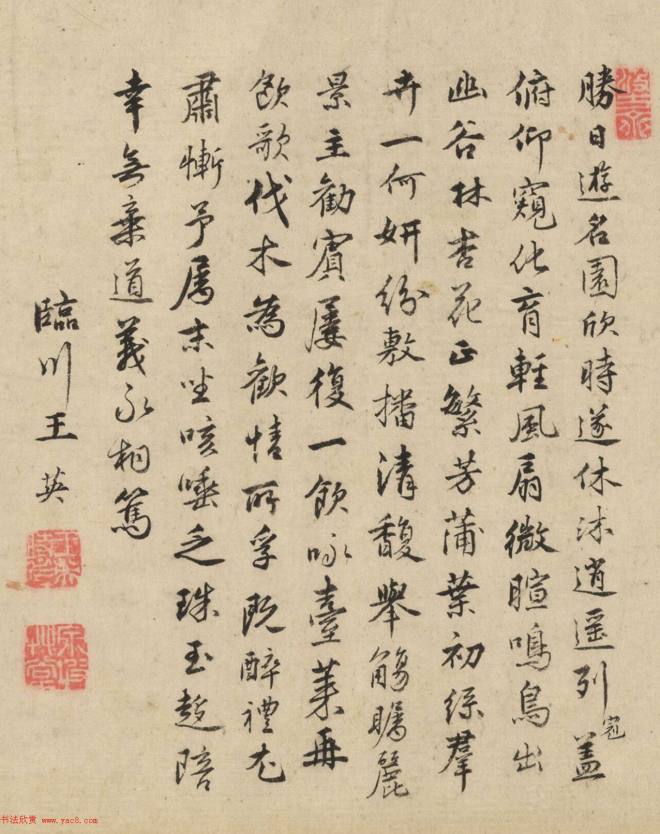 勝日遊名園欣時遂休沐逍遥列冠蓋
俯仰窺化育輕風扇微暄鳴鳥出
幽谷林杏花正繁芳蒲葉初綠羣
卉一何妍紛敷播清馥舉觴矚麗
景主勸賓屢復一飲咏臺萊再
飲歌伐木為歡情所孚既醉禮尤
肅慚予属末坐咳唾乏珠玉趍陪
幸無棄道義永相篤
臨川王英
书法欣赏 www.yac8.com